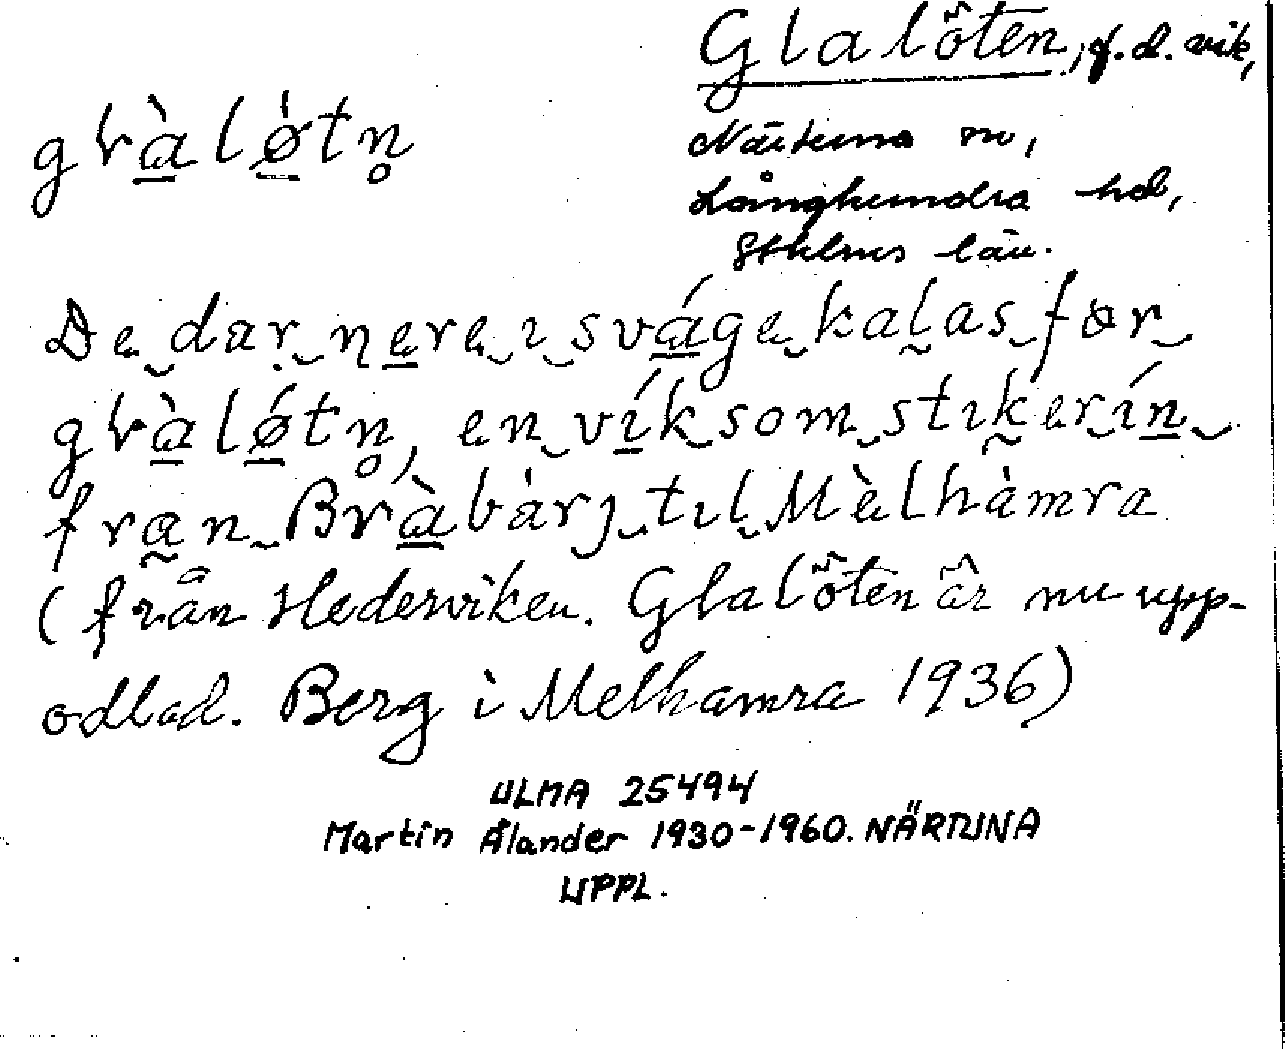 Glalöten, f.d. vik,
gɩàlǿtn̥
Närtuna sn,
Långhundra hd,
Sthlms län.
De dær nere ɩ sváge kalas før
gɩàlǿtn̥, en vík som stɩker ín
fran Bràbàrj tɩl Mèlhàmra
(från Hederviken. Glalöten är nu upp-
odlad. Berg i Melhamra 1936)
ULMA 25494
Martin Ålander 1930-1960. NÄRTUNA
UPPL.